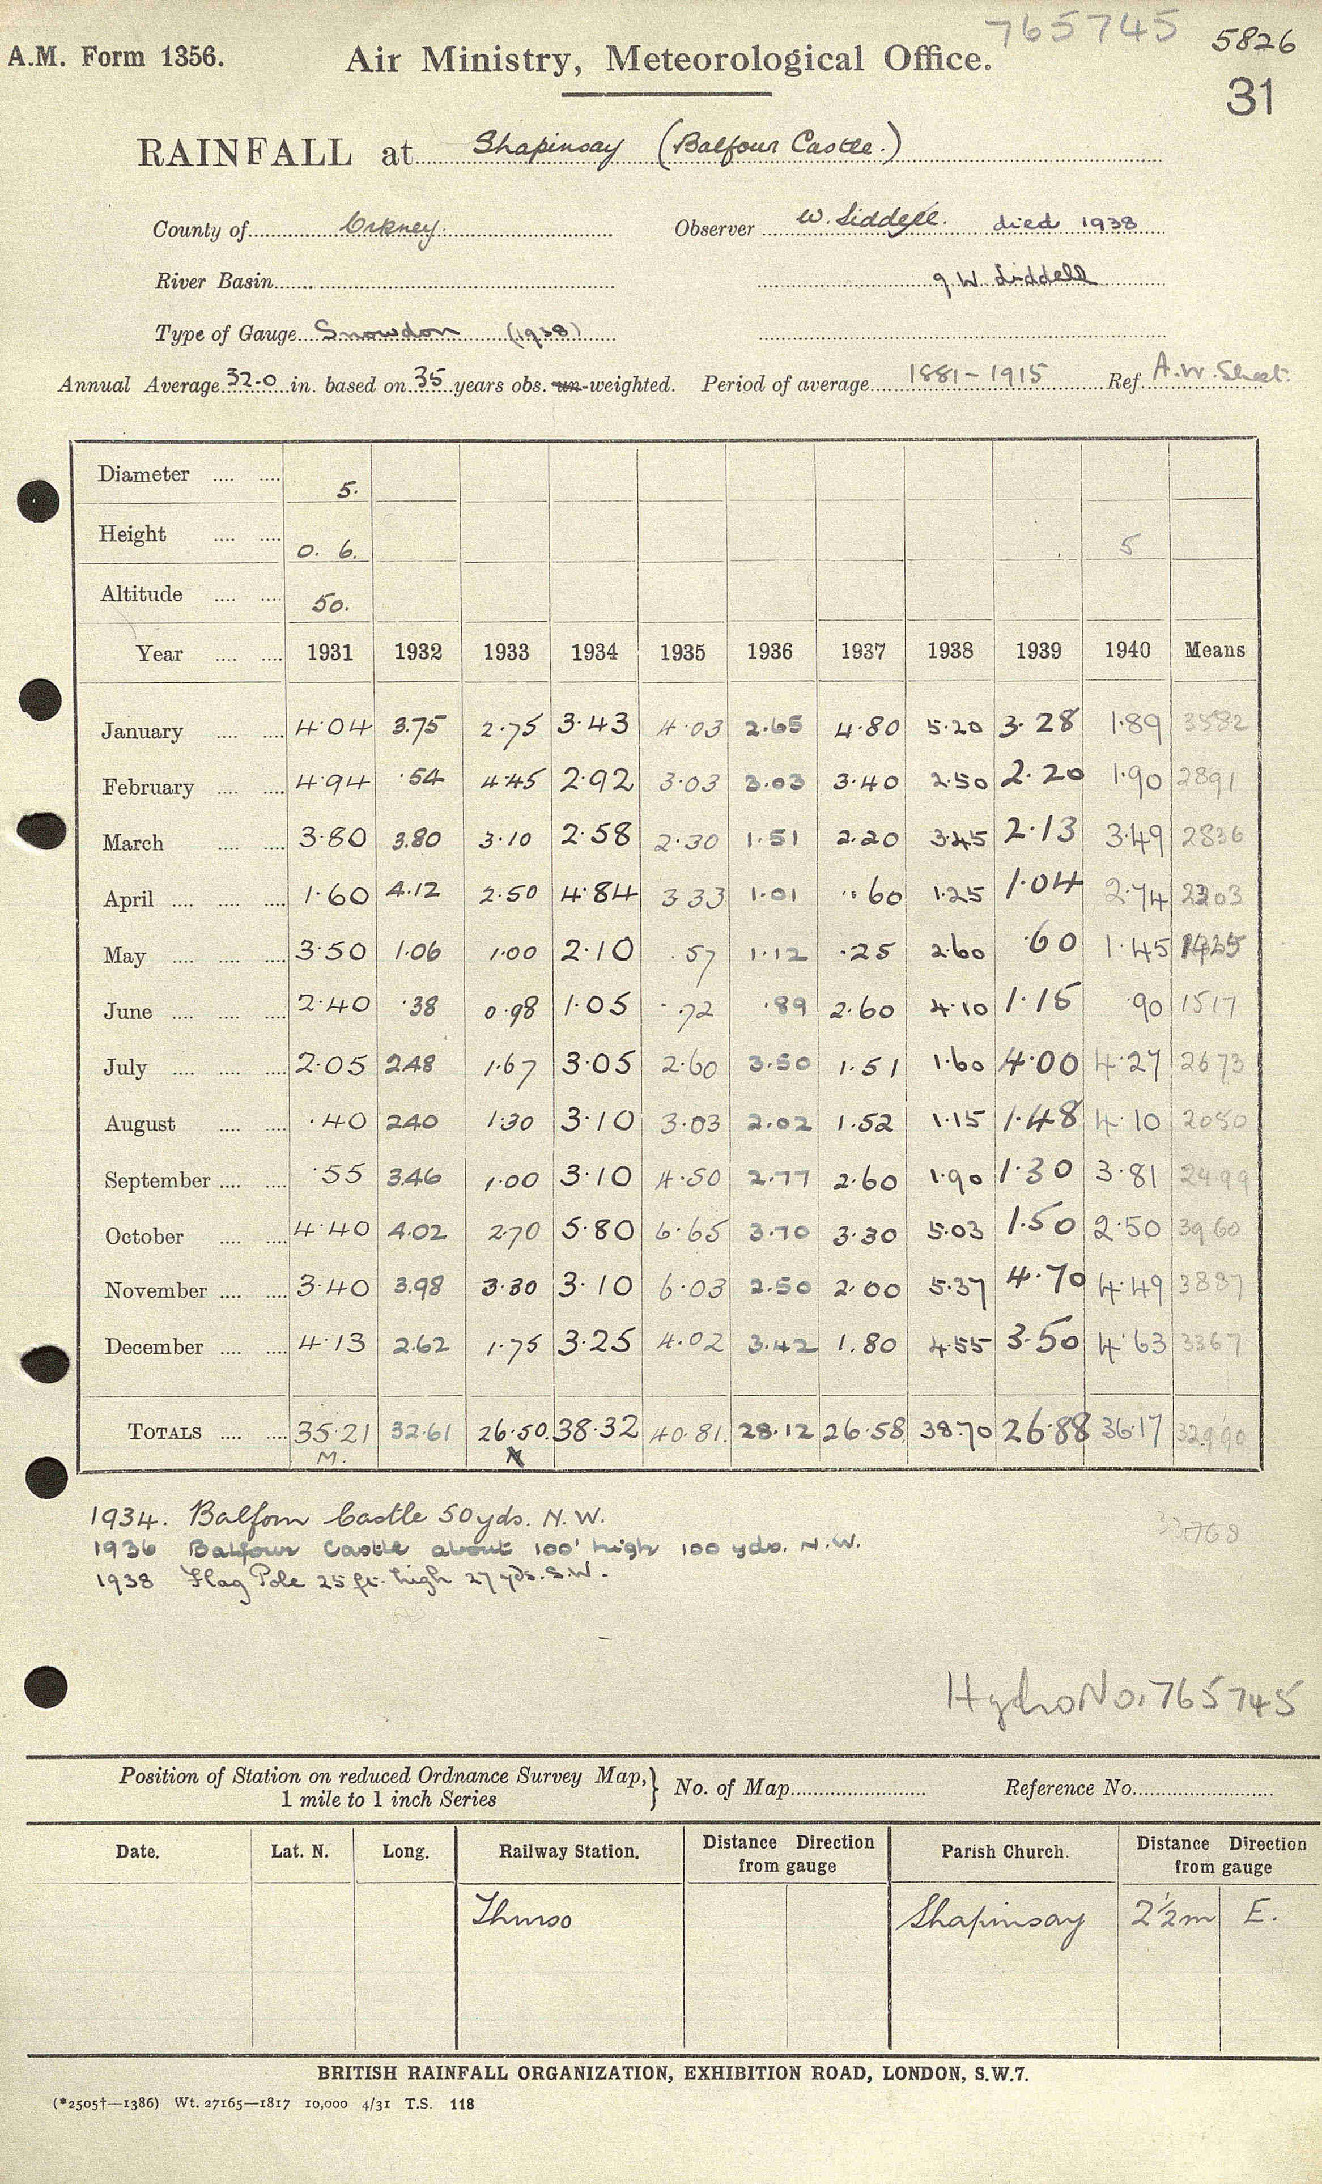 765745 5826
A.M. Form 1356. Air Ministry, Meteorological Office.
31
RAINFALL at Shapinsay (Balfour Castle.)
County of Orkney Observer W. Liddell. died 1938
River Basin W. Liddell
Type of Gauge Snowdon (1938)
Annual Average 32.0 in. based on 35 years obs. un-weighted. Period of average 1881-1915 Ref. A.W. Sheet.
Diameter 5.
Height 0. 6. 5
Altitude 50.
Year 1931 1932 1933 1934 1935 1936 1937 1938 1939 1940 Means
January 4.04 3.75 2.75 3.43 4.03 2.65 4.80 5.20 3.28 1.89 3582
February 4.94 .54 4.45 2.92 3.03 3.03 3.40 2.50 2.20 1.90 2891
March 3.80 3.80 3.10 2.58 2.30 1.51 2.20 3.45 2.13 3.49 2836
April 1.60 4.12 2.50 4.84 3.33 1.01 .60 1.25 1.04 2.74 2303
May 3.50 1.06 1.00 2.10 .57 1.12 .25 2.60 .60 1.45 1425
June 2.40 .38 0.98 1.05 .72 .89 2.60 4.10 1.15 .90 1517
July 2.05 2.48 1.67 3.05 2.60 3.50 1.51 1.60 4.00 4.27 2673
August .40 2.40 1.30 3.10 3.03 2.02 1.52 1.15 1.48 4.10 2050
September .55 3.46 1.00 3.10 4.50 2.77 2.60 1.90 1.30 3.81 2499
October 4.40 4.02 2.70 5.80 6.65 3.70 3.30 5.03 1.50 2.50 3960
November 3.40 3.98 3.30 3.10 6.03 2.50 2.00 5.37 4.70 4.49 3887
December 4.13 2.62 1.75 3.25 4.02 3.42 1.80 4.55 3.50 4.63 3367
TOTALS 35.21 32.61 26.50 38.32 40.81 28.12 26.58 38.70 26.88 36.17 32.990
M.
1934. Balfour Castle 50yds. N.W.
1936 Balfour Castle about 100' high 100 yds. N.W.
1938 Flag Pole 25 ft. high 27 yds. S.W.
Hydro No. 765745
Position of Station on reduced Ordnance Survey Map, 1 mile to 1 inch Series } No. of Map Reference No.
Date. Lat. N. Long. Railway Station. Distance Direction from gauge Parish Church. Distance Direction from gauge
Thurso Shapinsay 2½m E.
BRITISH RAINFALL ORGANIZATION, EXHIBITION ROAD, LONDON, S.W.7.
(*2505†—1386) Wt. 27165—1817 10,000 4/31 T.S. 118